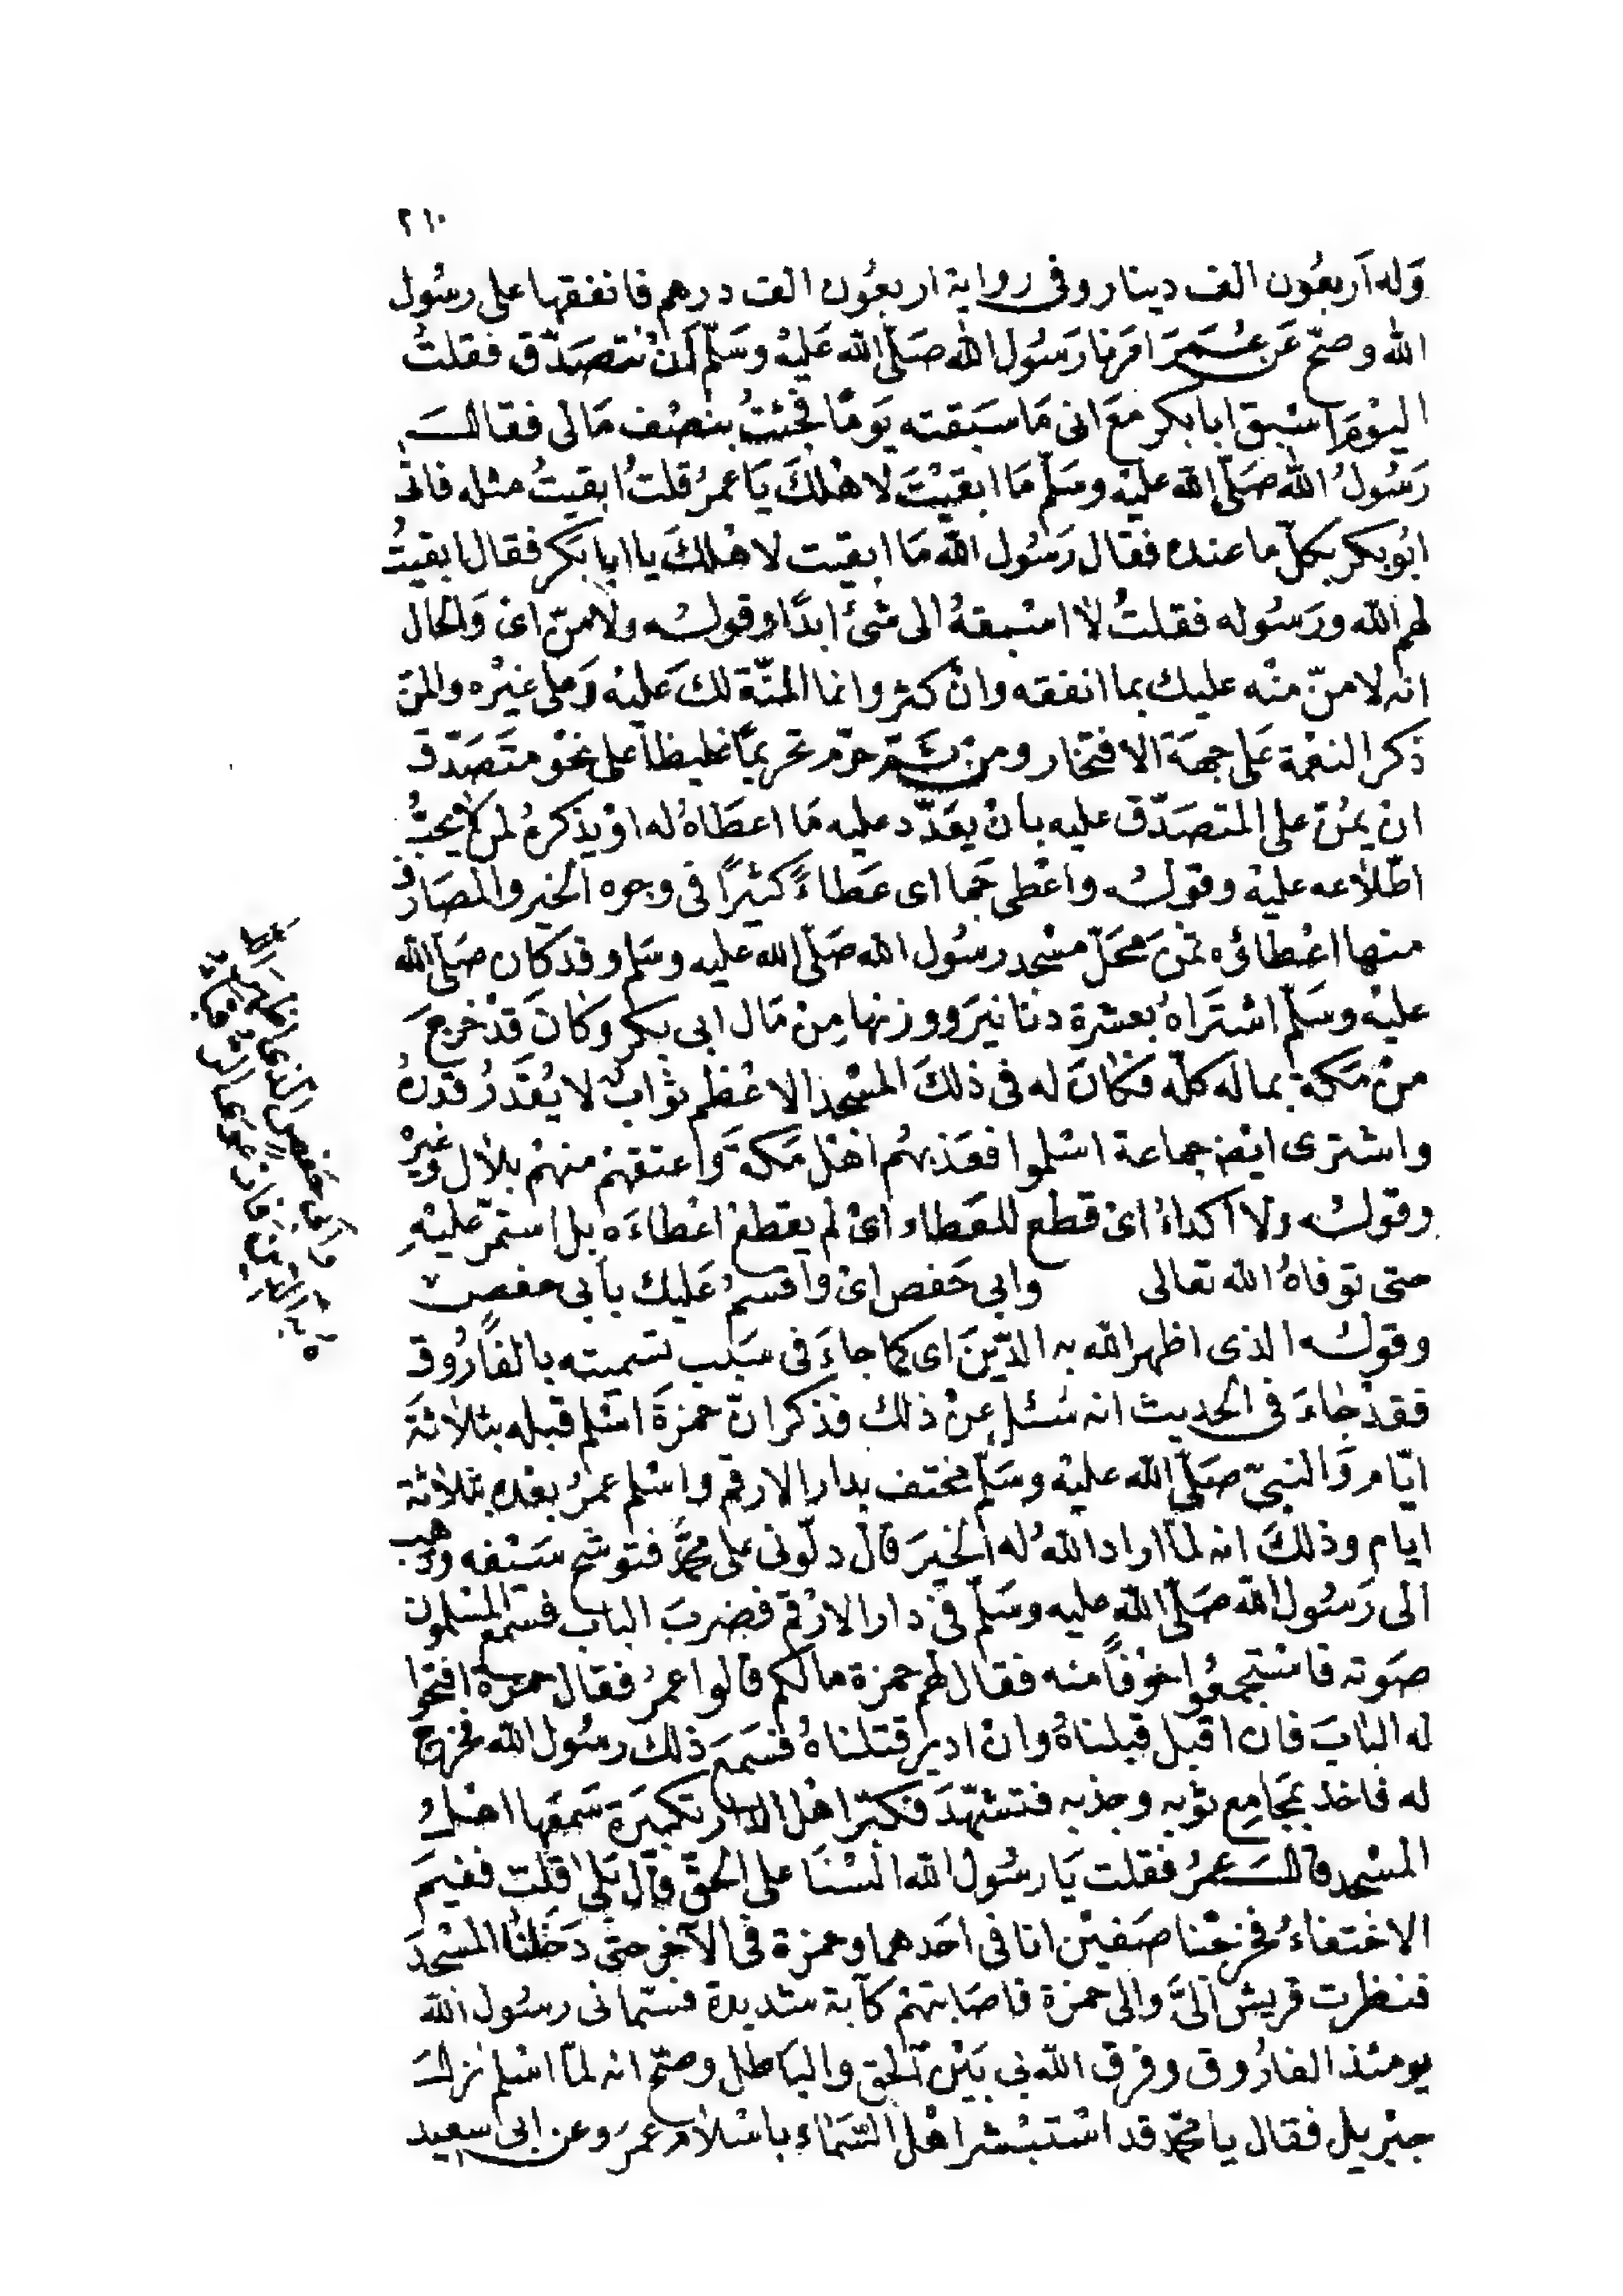 ٢١٠
وَله اَربعُون الف دينار وفى رواية اربعُون الف درهم فانفقها على رسُول
الله وصحّ عَن عُمَرَ امَرنا رَسُول الله صَلّى الله عَليْه وسَلّم اَنْ نتصَدّق فقلتُ
اليْومَ اسْبق ابا بكر معَ انى مَا سَبَقته يَومًا فجئتُ بنصْف مَالى فقالَ
رَسُولُ الله صَلّى الله عليْه وسَلّم مَا ابقيْتَ لاهْلكَ يَا عمرُ قلتُ ابقيتُ مثله فاتى
ابُو بكر بكلّ ما عنده فقال رَسُول الله مَا ابقيت لاهْلكَ يا ابا بَكر فقال ابقيتُ
لهم الله ورَسُوله فقلتُ لا اسْبقهُ الى شئ ابدًا وقولـه ولا منّ اىْ وَالحال
انه لا منّ منْه عليك بما انفقه وانْ كثر وانما المنّة لكَ عَليْه وَعلى غيْره والمنّ
ذكر النعْمة عَلى جهَة الافتخار ومن ثَمّ حرّم تحريمًا غليظًا على نحْو متَصَدّق
ان يمُنّ على المتصَدّق عليه بانْ يعَدّد عليه مَا اعطَاهُ له اوْ يذكرهُ لمن لا يحبُّ
اطّلاعه عليْه وقولـه واعْطى جَما اى عَطاءً كثيرًا فى وجوه الخير والمصَارف
منها اعْطائه ثمنَ محَلّ مسْجد رسُول الله صَلّى الله عليه وسَلم وقد كان صَلّى الله
عليْه وسَلّم اشتَرَاهُ بعشرة دنانيرَ ووزنها مِنْ مَال ابى بكر وَكانَ قدْ خرجَ
منْ مَكة بماله كلّه فكانَ له فى ذلكَ المسْجد الاعْظم ثوابٌ لا يُقَدَرُ قدرهُ
واشترى ايْضا جماعة اسْلموا فعَذبهُم اهْل مَكةَ وَاعتقهمْ منهمْ بلال وَغيرْه
وقولـه ولا اكداءُ اىْ قطع للعَطاء اىْ لم يقطعْ اعْطاءَه بل استمرّ عليْهِ
حتى توفاهُ الله تعالى وابى حَفص اىْ واقسمُ عَليك بأبى حفص
وقولـه الذى اظهر الله به الدّينَ اى كما جاءَ فى سَبَب تسميته بالفَارُوق
فقدْ جاءَ فى الحديث انه سُئل عنْ ذلك فذكر انّ حمزَةَ اسْلم قبله بثلاثةَ
ايّام وَالنبىّ صَلّى الله عليْه وسَلّم مختف بدار الارقم واسْلم عمرُ بعْده بثلاثة
ايام وذلكَ انه لمّا اراد اللهُ له الخيرَ قال دلّونى على محمَّد فتوشّح سَيْفه وذهب
الى رَسُول الله صَلّى الله عليه وسَلّم فى دار الارْقم فضربَ الباب فسَمعَ المسْلمون
صَوته فاستجمعُوا خوْفًا منه فقال لهم حمزة مالكم قالوا عمرُ فقال حمزة افتحوا
له البابَ فان اقبل قبلناهُ وانْ ادبر قتلناهُ فسَمعَ ذلك رسُول الله فخرج
له فاخذ بمجَامِع ثوْبه وجذبه فتشهّدَ فكبّر اهْل الدار تكبيرَة سَمعَها اهْلُ
المسْجد قالَ عمرُ فقلت يَا رسُول الله السْنَا على الحقّ قال بَلى قلت ففيمَ
الاختفاءُ فخرجْنا صَفيْن انا فى احَدهما وحمزة فى الآخر حتّى دَخلْنا المسْجدَ
فنظرت قريش الىَّ والى حمزة فاصَابتهمْ كآبة شديدة فسَمّانى رسُول الله
يومئذ الفارُوق وفرق الله بى بَيْن الحق والباطل وصحّ انه لمّا اسْلم نزلَ
جبْريل فقال يا محمّد قد اسْتبْشر اهْل السّمَاء باسْلام عمرَ وعن ابى سعيد
وَأبى حَفصٍ الذى أظهر الله
به الدّين